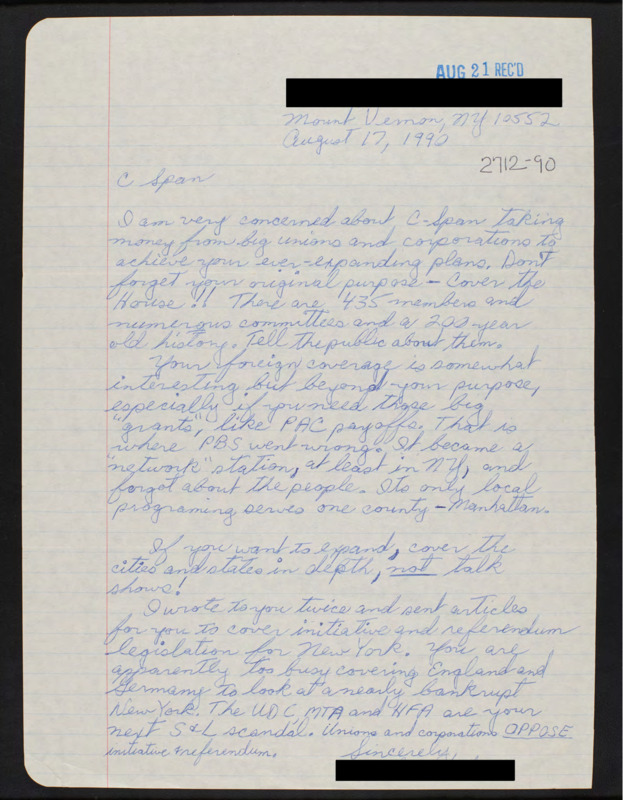 AUG 21 REC'D
Mount Vernon, NY 10552
August 17, 1990
2712-90
C Span
I am very concerned about C-Span taking
money from big unions and corporations to
achieve your ever-expanding plans. Don't
forget your original purpose - Cover the
House!! There are 435 members and
numerous committees and a 200-year
old history. Tell the public about them.
Your foreign coverage is somewhat
interesting but beyond your purpose,
especially if you need those big
"grants", like PAC payoffs. That is
where PBS went wrong. It became a
"network" station, at least in NY, and
forgot about the people. Its only local
programing serves one county - Manhattan.
If you want to expand, cover the
cities and states in depth, not talk
shows!
I wrote to you twice and sent articles
for you to cover initiative and referendum
legislation for New York. You are
apparently too busy covering England and
Germany to look at a nearly bankrupt
New York. The UDC, MTA and HFA are your
next S+L scandal. Unions and corporations OPPOSE
initiative + referendum.
Sincerely,